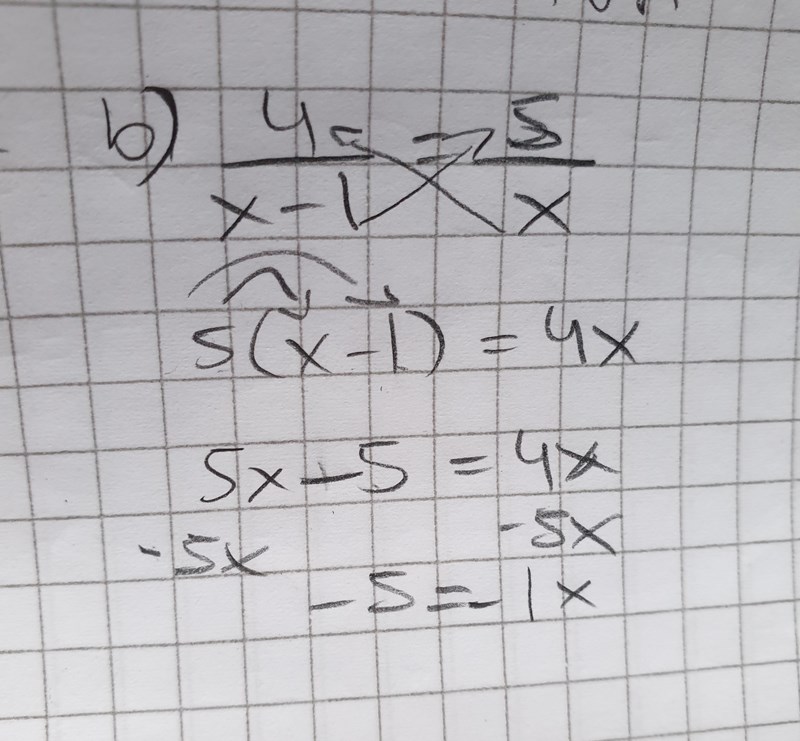 b) 4/(x-1) = 5/x
5(x-1) = 4x
5x-5 = 4x
-5x -5x
-5=-1x